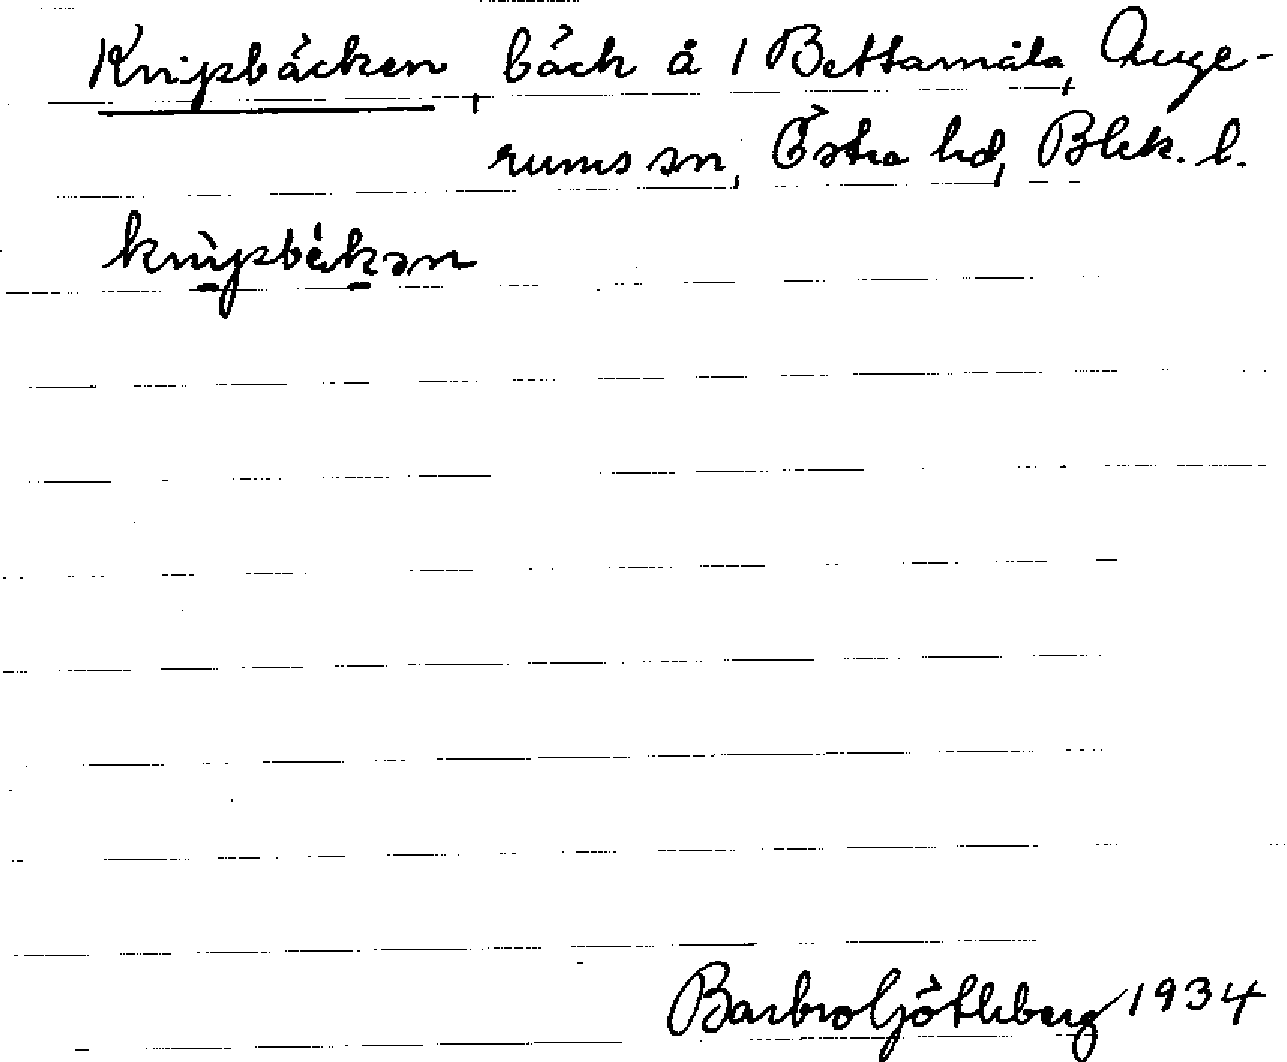 Knipbäcken, bäck å 1 Bettamåla, Auge-
rums sn, Östra hd, Blek. l.
knìpbékən
Barbro Götleberg 1934